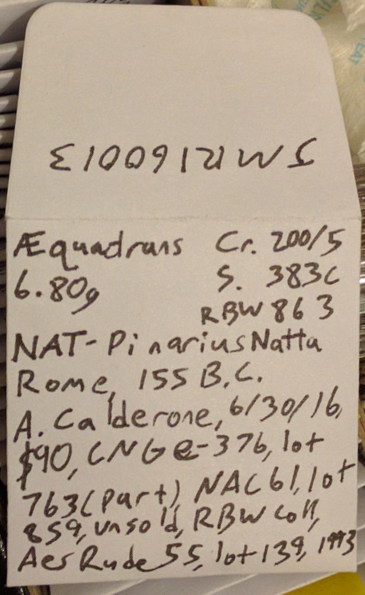 JMR160013
Æquadrans Cr. 200/5
6.80g S. 383c
RBW 863
NAT- Pinarius Natta
Rome, 155 B.C.
A. Calderone, 6/30/16,
$90, CNG e-376, lot
763(part) NAC 61, lot
859, unsold, RBW coll,
Aes Rude 55, lot 139, 1993